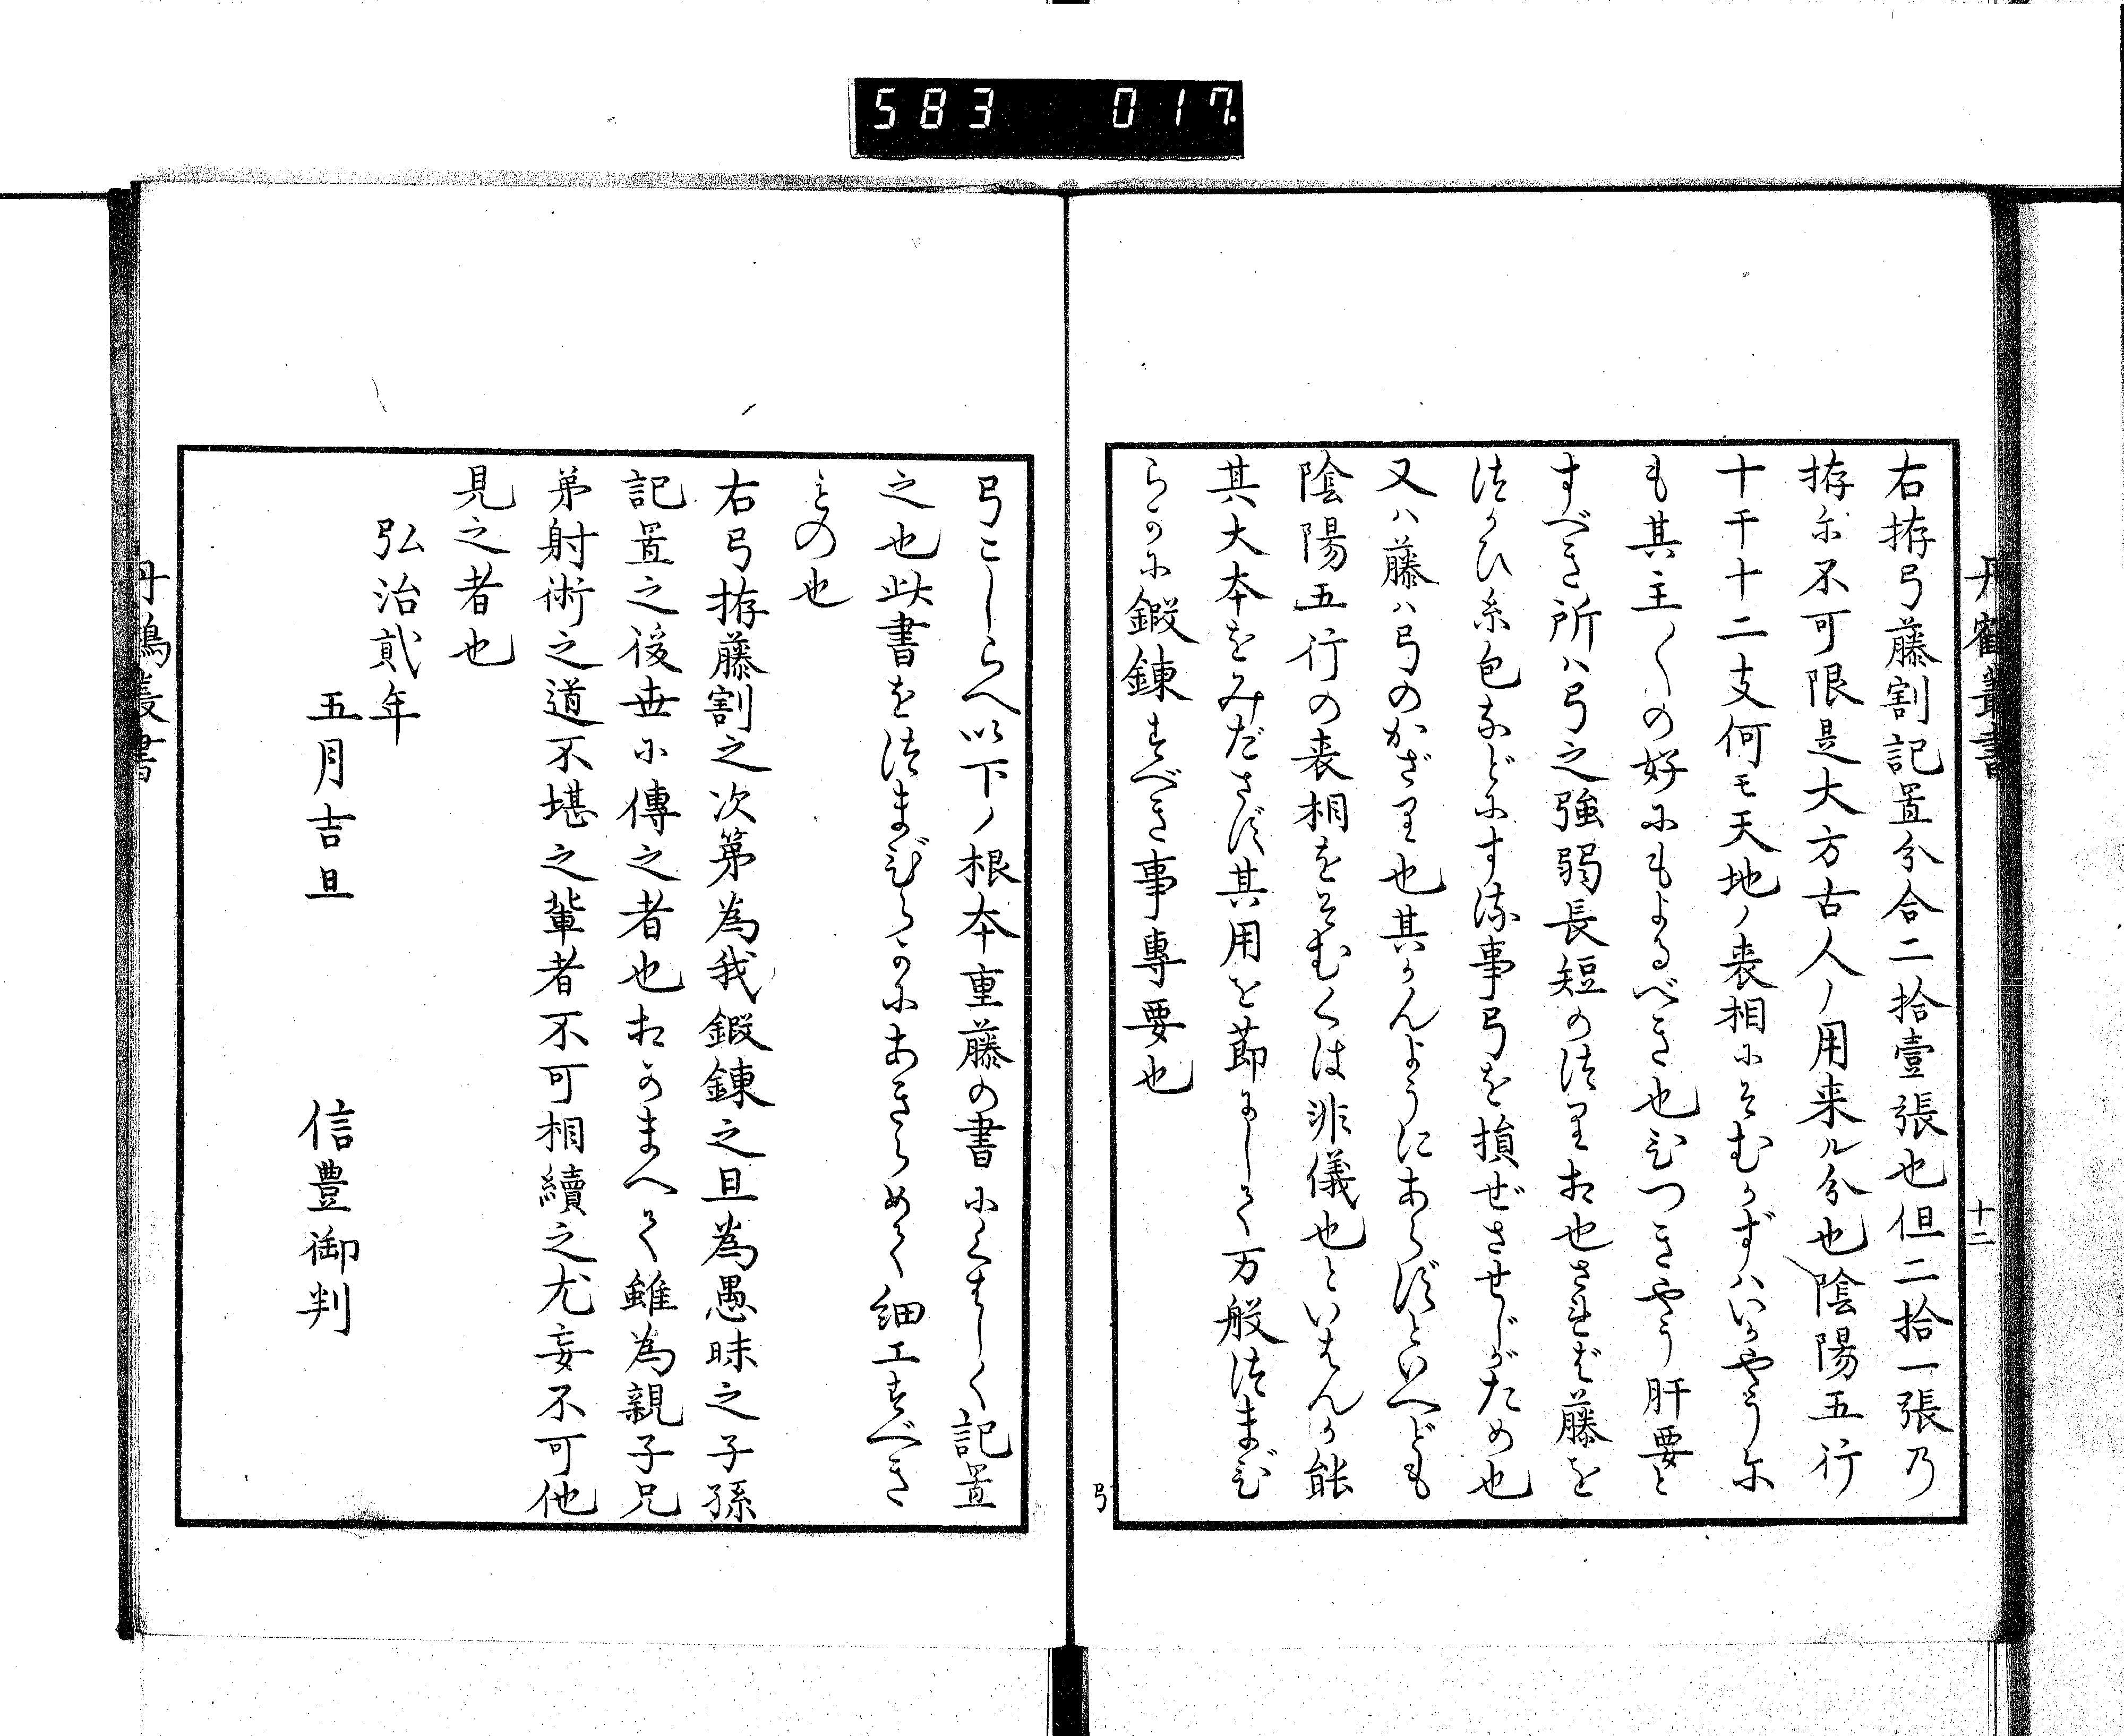 583 017
丹鶴叢書
十二
右拵弓藤割記置分合二拾壹張也但二拾一張乃
拵尓不可限是大方古人ノ用来ル分也陰陽五行
十干十二支何モ天地ノ喪相にそむかずハいかやう尓
も其主〱の好にもよるべき也ひつきやう肝要と
すべき所ハ弓之強弱長短のつり也されば藤を
つかひ糸包などにする事弓を損ぜさせじがため也
又ハ藤ハ弓のかざり也其かんようにあらずといへども
陰陽五行の表相をそむくは非儀也といはんか能
其大本をみださず其用を節にして万般つまび
らかに鍛錬すべき事専要也
弓
弓こしらへ以下ノ根本重藤の書にくはしく記置
之也此書をつまびらかにあきらめて細工すべき
もの也
右弓拵藤割之次第為我鍛錬之且為愚昧之子孫
記置之後世に傳之者也あひかまへて雖為親子兄
弟射術之道不堪之輩者不可相續之尤妄不可他
見之者也
弘治貳年
五月吉旦
信豊御判
丹鶴叢書